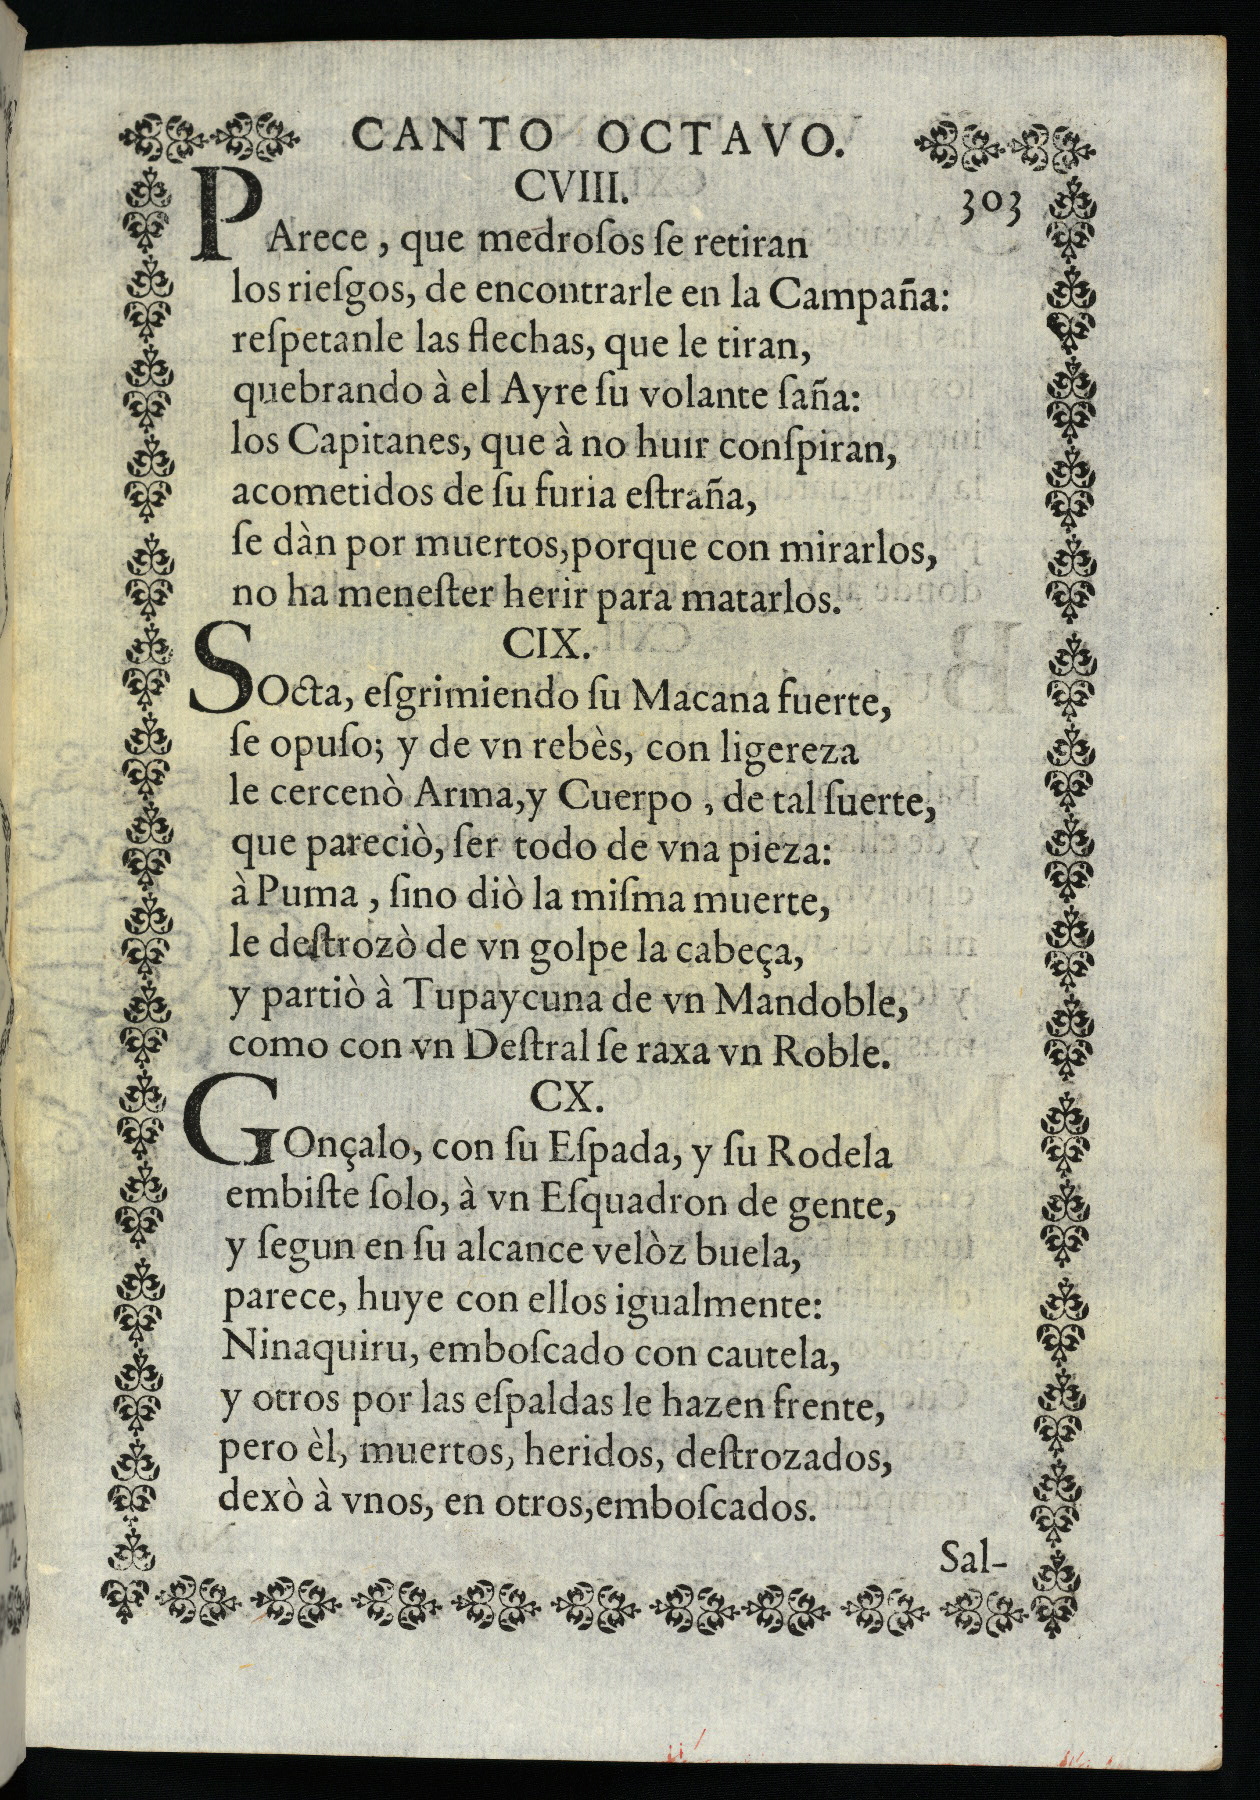 CANTO OCTAVO.
CVIII.
303
PArece, que medroſos ſe retiran
los rieſgos, de encontrarle en la Campaña:
reſpetanle las flechas, que le tiran,
quebrando à el Ayre ſu volante ſaña:
los Capitanes, que à no huir conſpiran,
acometidos de ſu furia eſtraña,
ſe dàn por muertos, porque con mirarlos,
no ha meneſter herir para matarlos.
CIX.
SOcta, eſgrimiendo ſu Macana fuerte,
ſe opuſo; y de vn rebès, con ligereza
le cercenò Arma, y Cuerpo, de tal ſuerte,
que pareciò, ſer todo de vna pieza:
à Puma, ſino diò la miſma muerte,
le deſtrozò de vn golpe la cabeça,
y partiò à Tupaycuna de vn Mandoble,
como con vn Deſtral ſe raxa vn Roble.
CX.
GOnçalo, con ſu Eſpada, y ſu Rodela
embiſte ſolo, à vn Eſquadron de gente,
y ſegun en ſu alcance velòz buela,
parece, huye con ellos igualmente:
Ninaquiru, emboſcado con cautela,
y otros por las eſpaldas le hazen frente,
pero èl, muertos, heridos, deſtrozados,
dexò à vnos, en otros, emboſcados.
Sal-